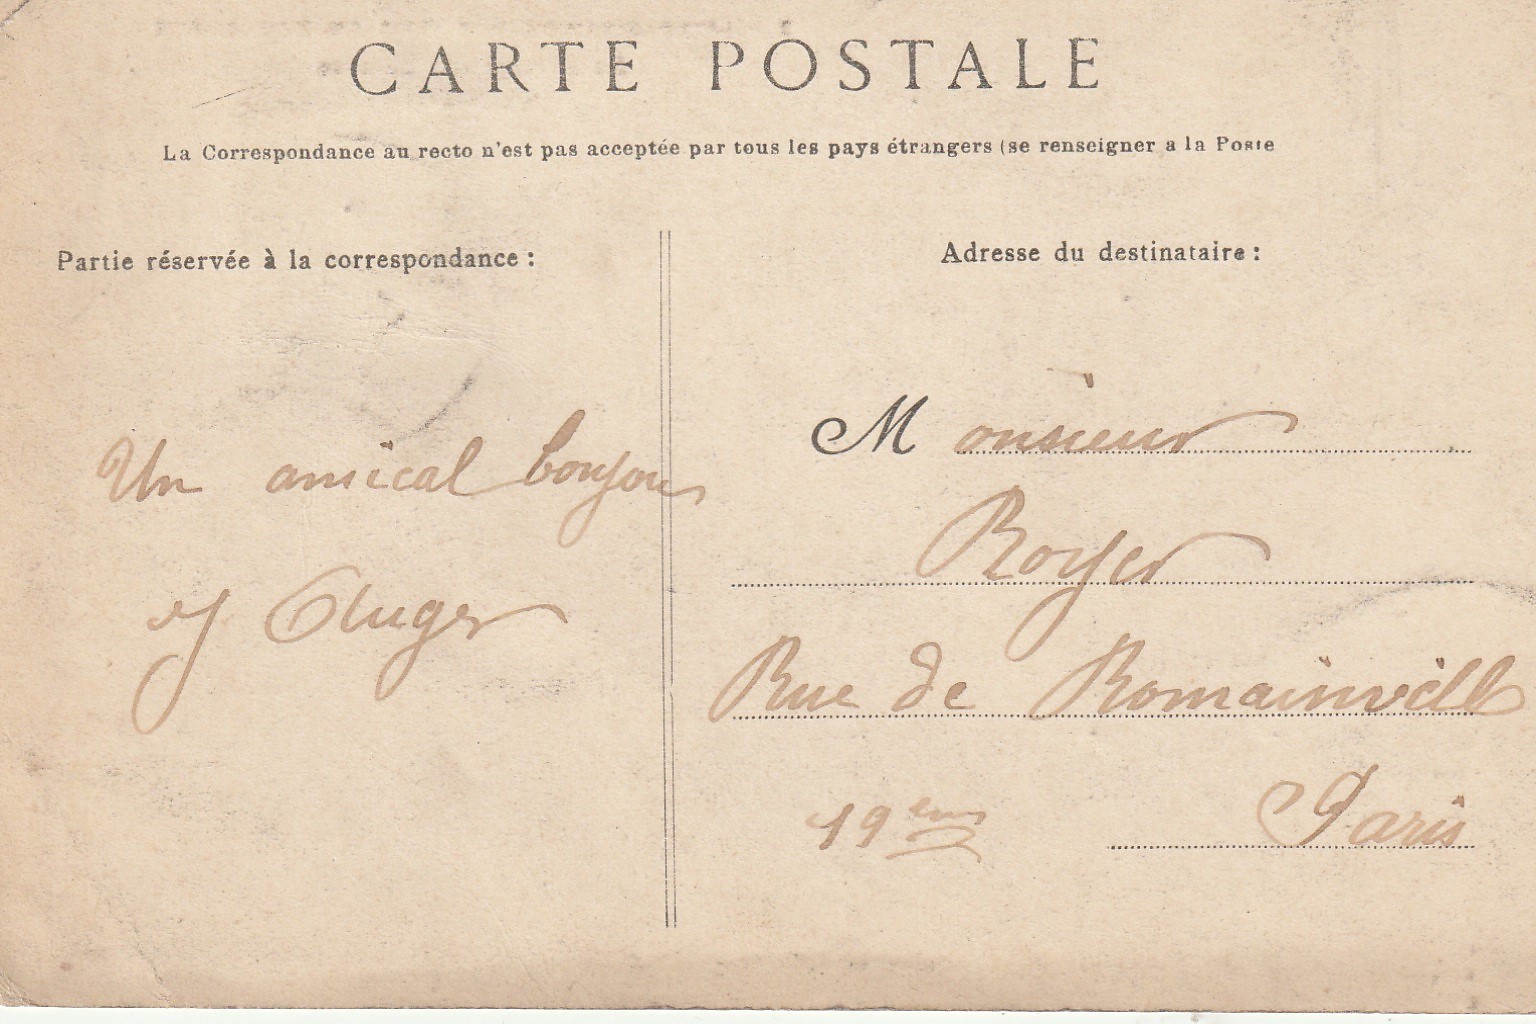 CARTE POSTALE
La Correspondance au recto n'est pas acceptée par tous les pays étrangers (se renseigner a la Poste
Partie réservée à la correspondance :
Un amical bonjour
J Auger
Adresse du destinataire :
Monsieur
Royer
Rue de Romainville
19eme Paris